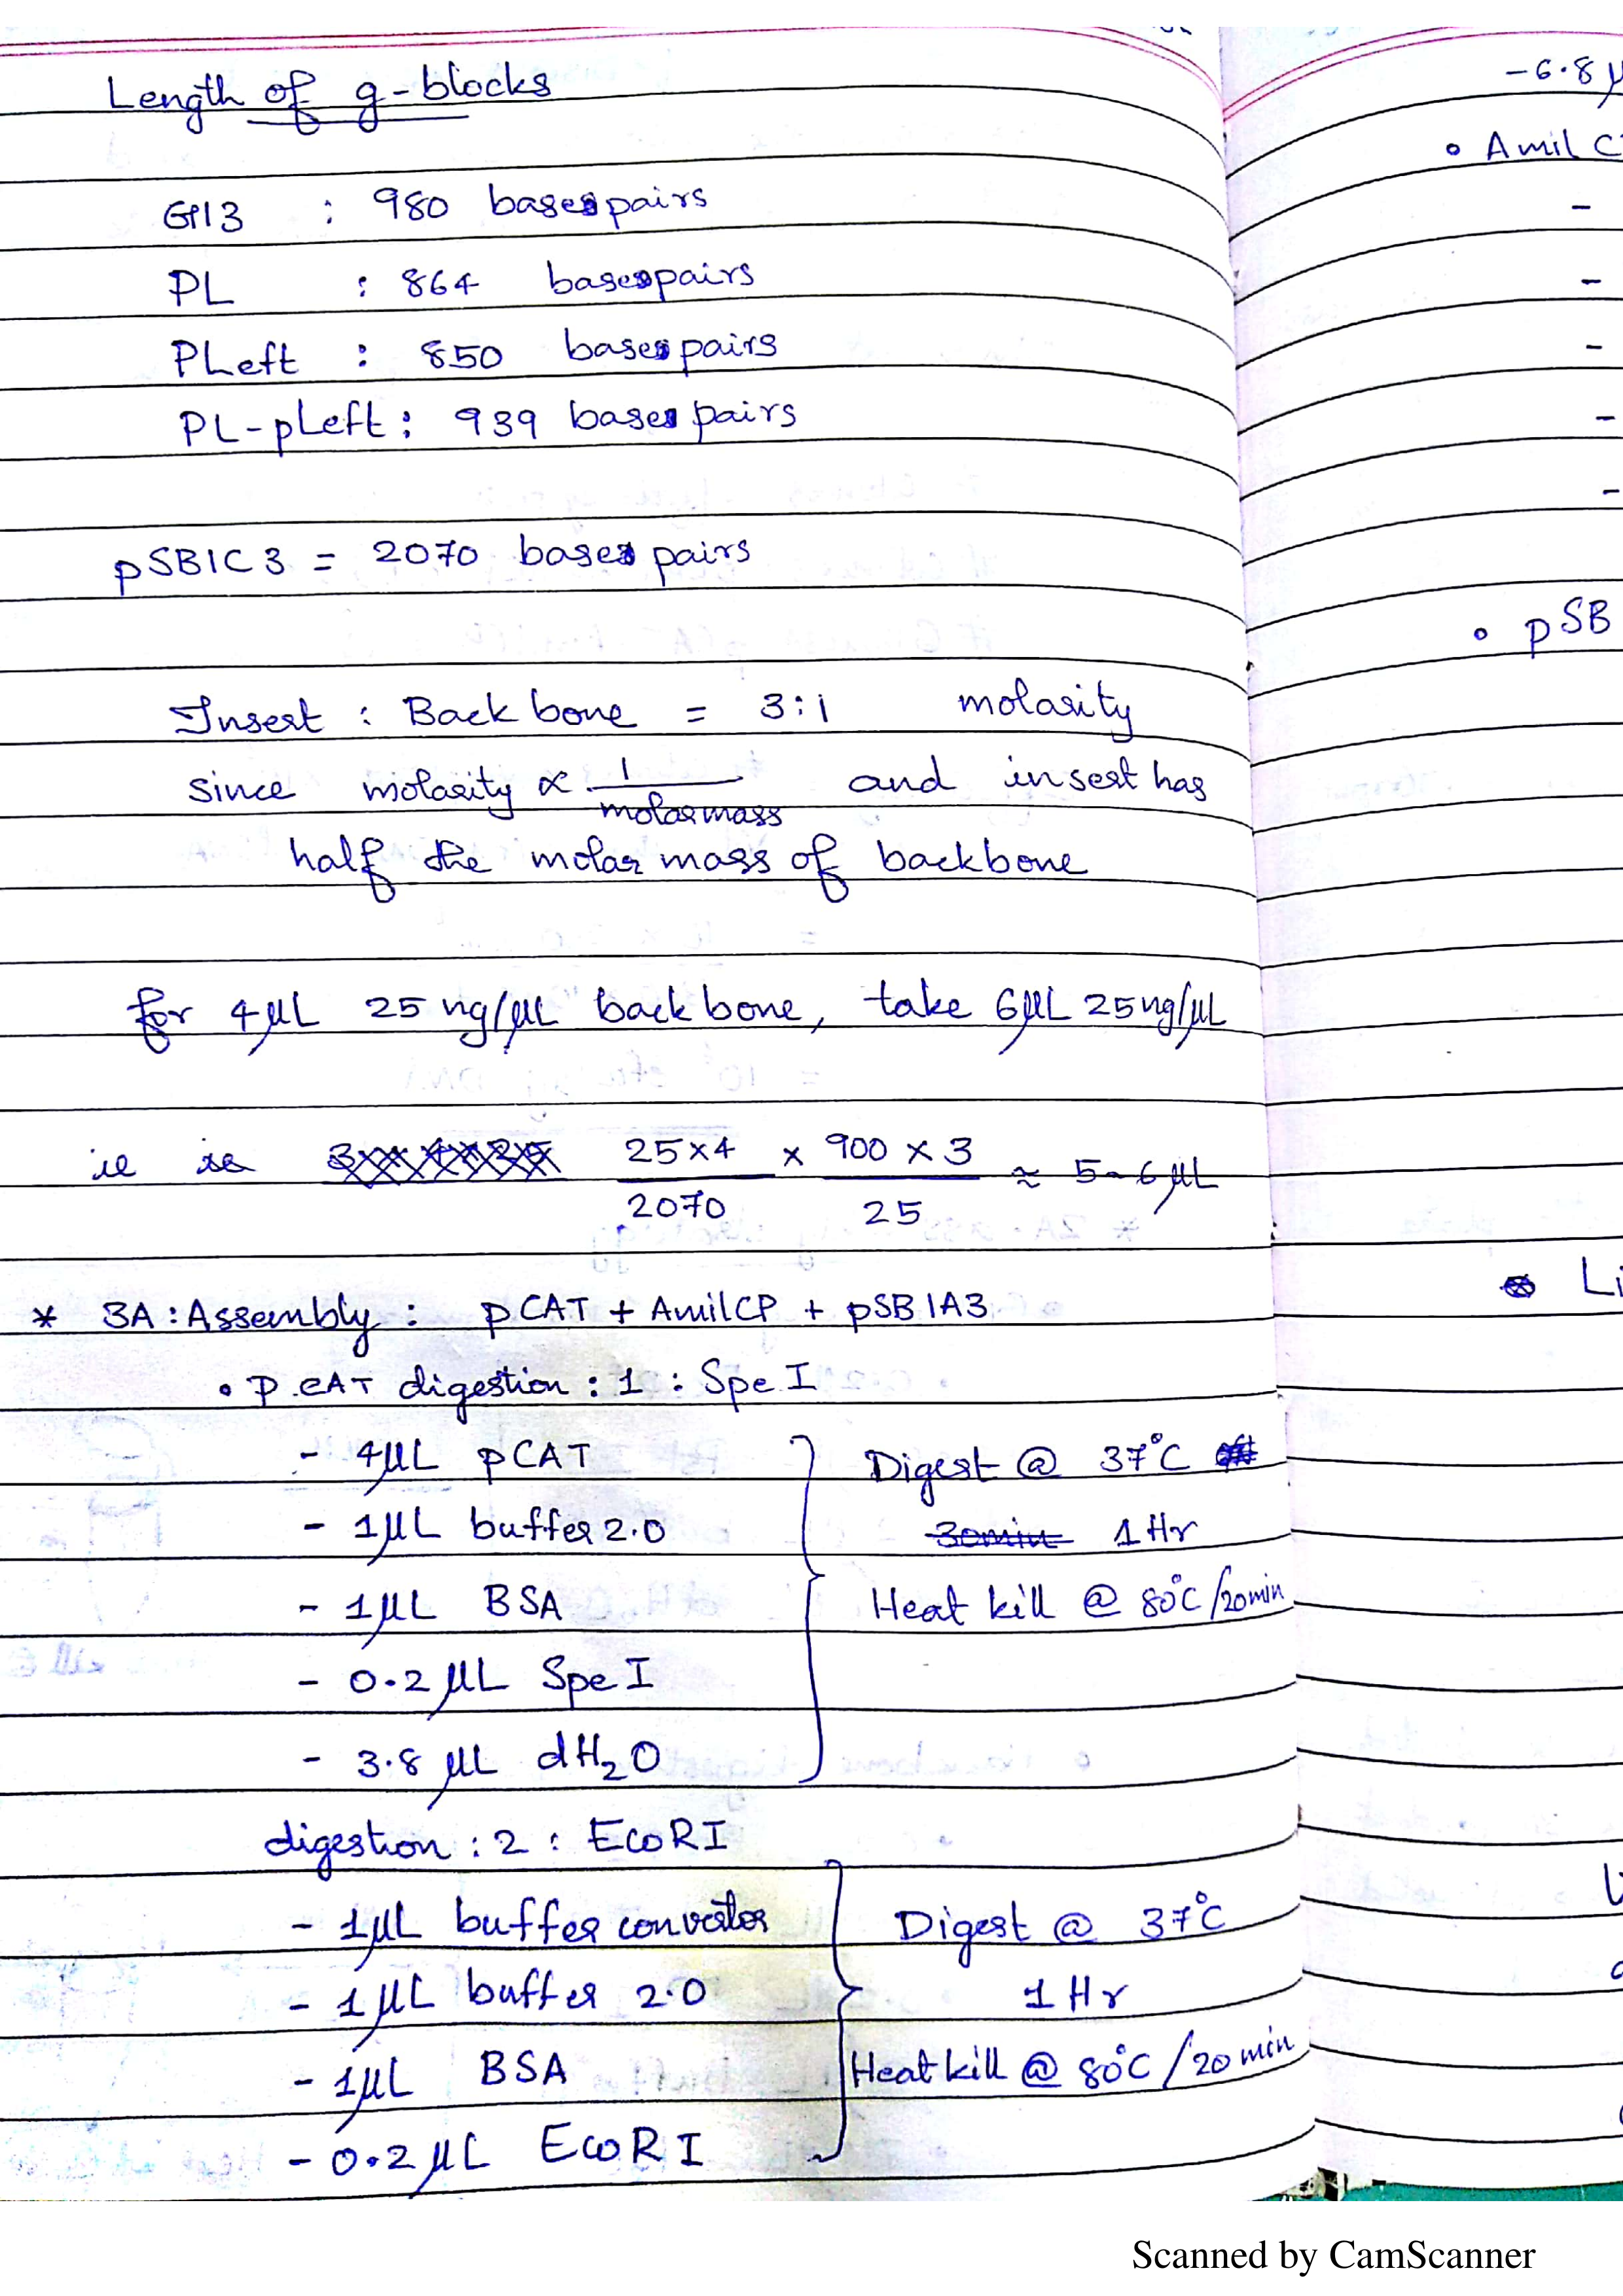 Length of g-blocks
G13 : 980 basepairs
PL : 864 basepairs
PLeft : 850 basepairs
PL-pLeft : 939 base pairs
pSB1C3 = 2070 base pairs
Insert : Backbone = 3:1 molarity
since molarity ∝ 1/molar mass and insert has
half the molar mass of backbone
for 4µL 25 ng/µL backbone, take 6µL 25ng/µL
ie 25×4/2070 × 900 × 3/25 ≈ 5-6 µL
* 3A : Assembly : pCAT + AmilCP + pSB1A3
• pCAT digestion : 1 : SpeI
- 4µL pCAT
- 1µL buffer 2.0
- 1µL BSA
- 0.2 µL SpeI
- 3.8 µL dH₂O
Digest @ 37°C
30min 1 Hr
Heat kill @ 80°C /20min
digestion : 2 : EcoRI
- 1µL buffer convertor
- 1µL buffer 2.0
- 1µL BSA
- 0.2 µL EcoRI
Digest @ 37°C
1 Hr
Heat kill @ 80°C /20 min
-6.8 µ
• Amil C
-
-
-
-
-
• pSB
Li
Scanned by CamScanner